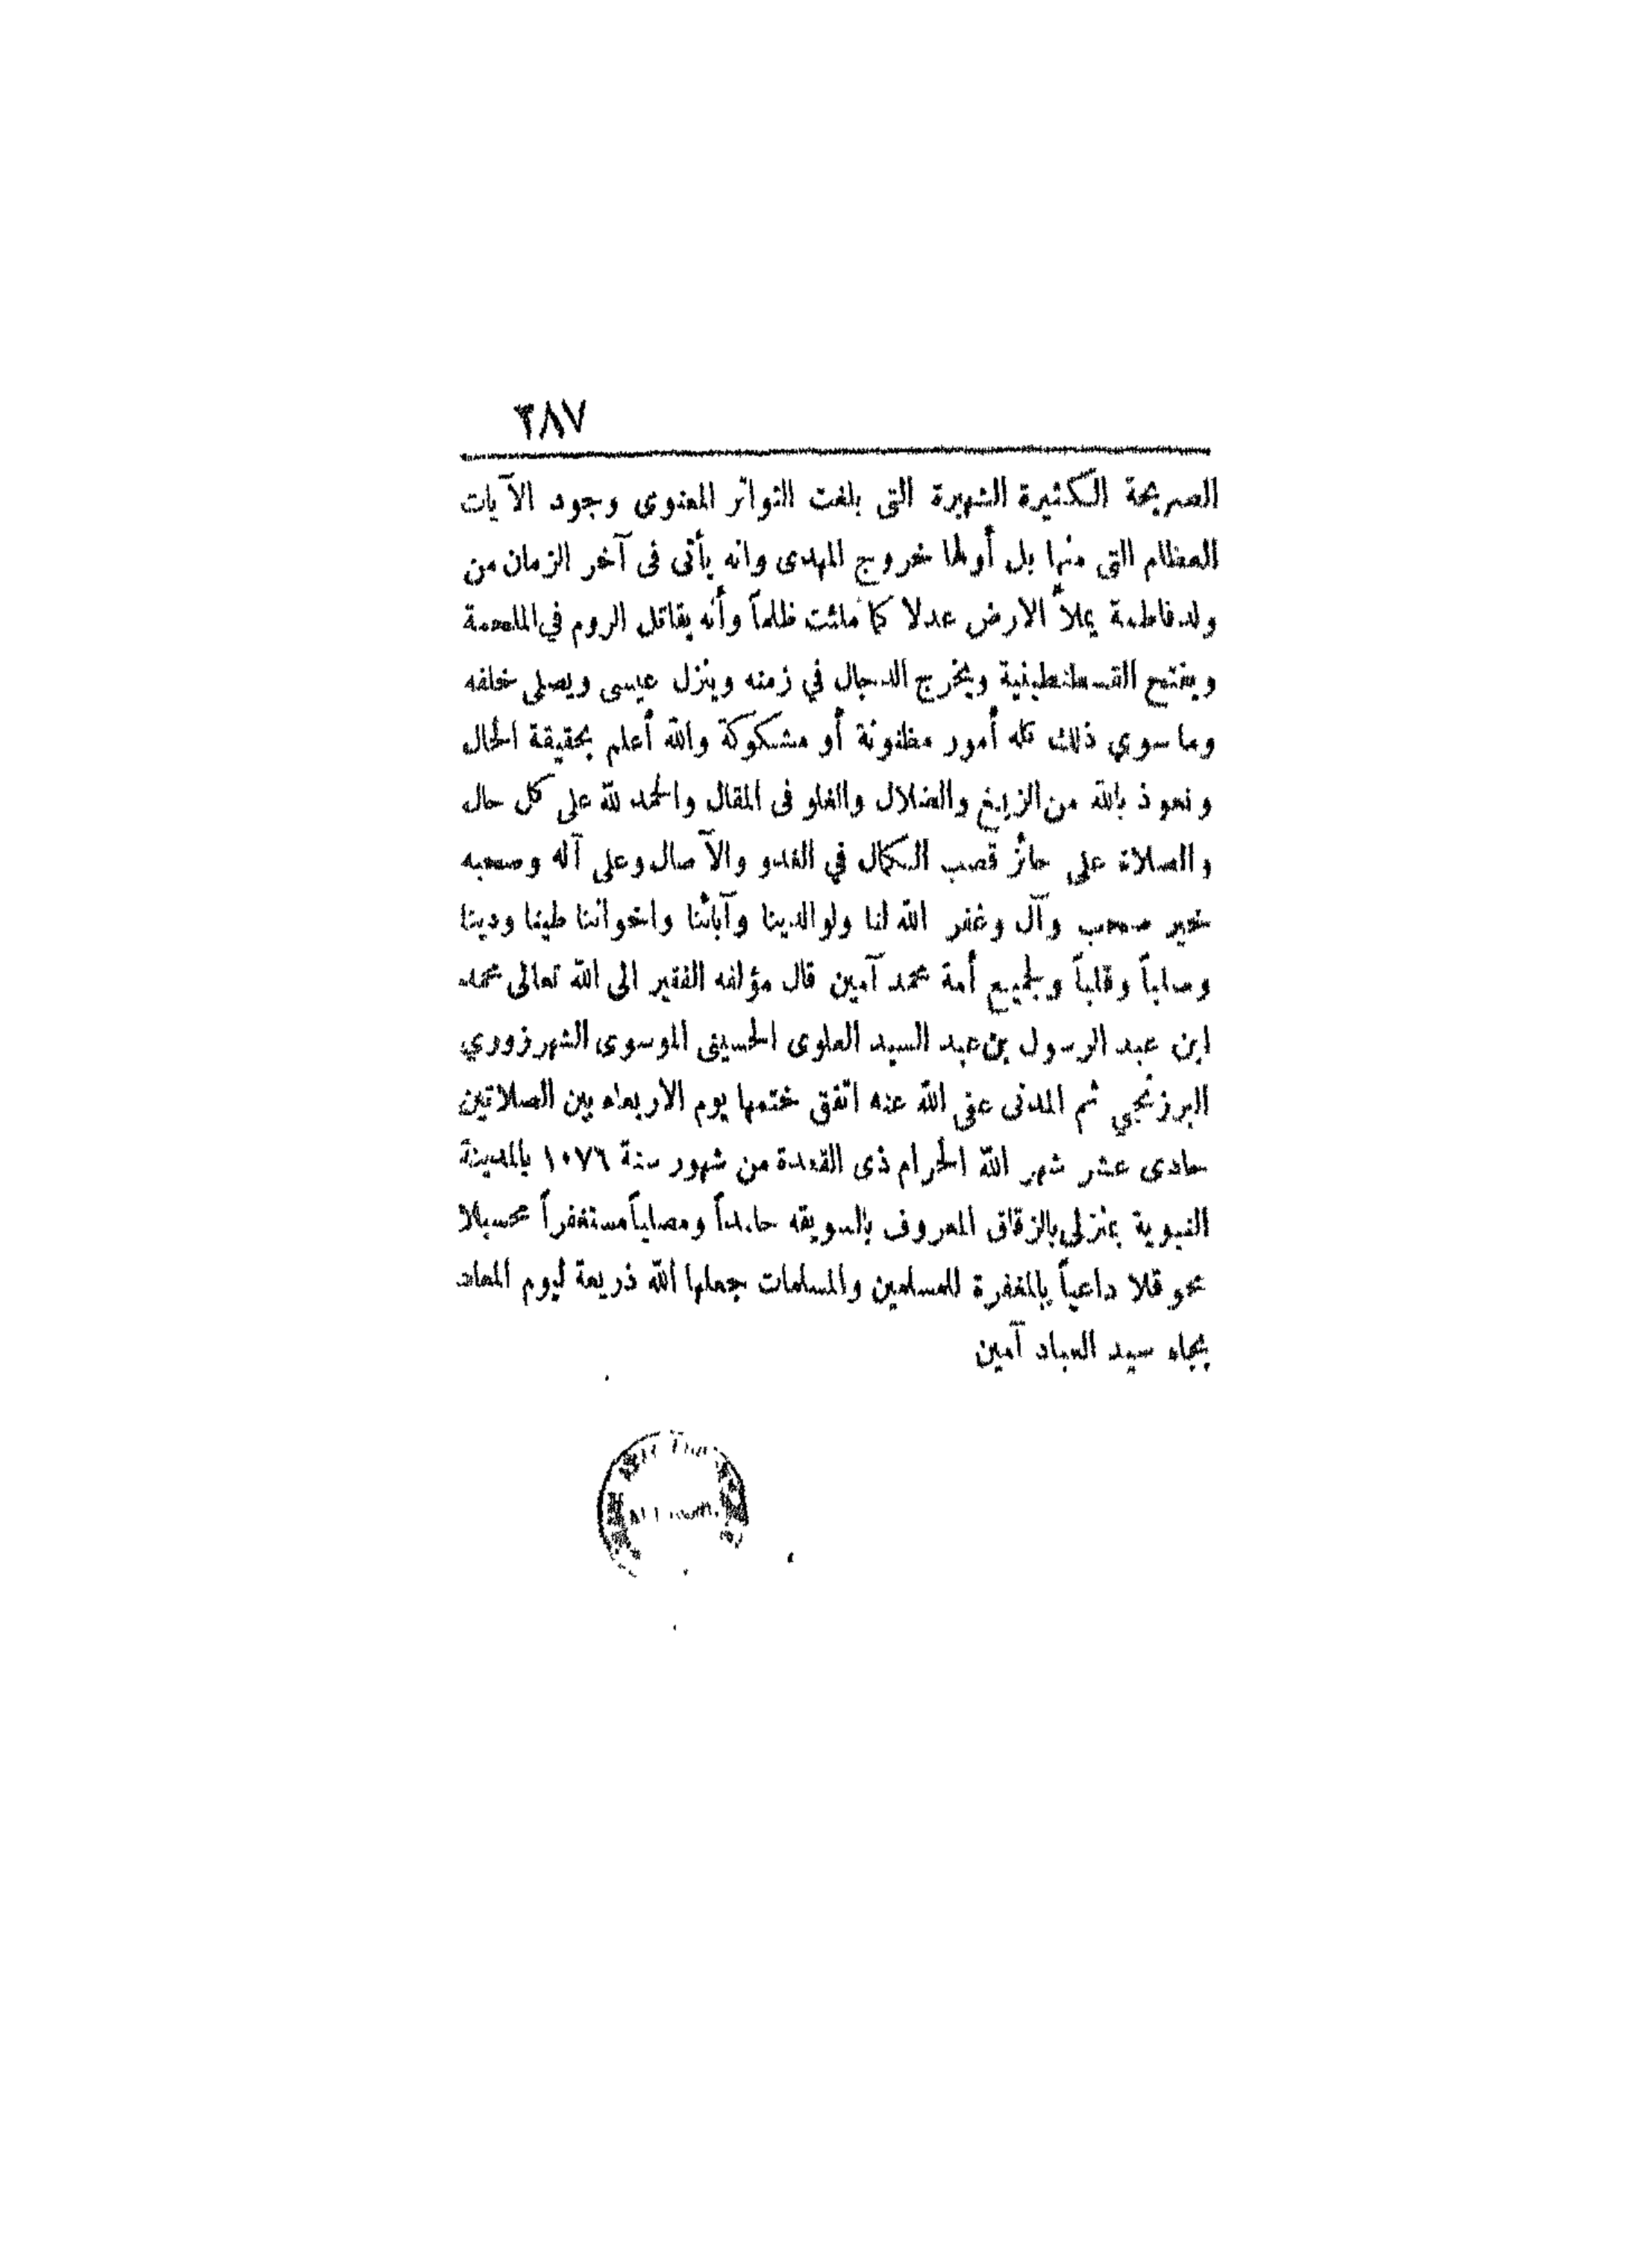 ٣٨٧
الصريحة الكثيرة الشهيرة التي بلغت التواتر المعنوى وجود الآيات
العظام التي منها بل أولها خروج المهدى وانه يأتى فى آخر الزمان من
ولد فاطمة يملأ الارض عدلا كما ملئت ظلماً وأنه يقاتل الروم في الملحمة
ويفتح القسطنطينية ويخرج الدجال في زمنه وينزل عيسى ويصلى خلفه
وما سوي ذلك كله أمور مظنونة أو مشكوكة والله أعلم بحقيقة الحال
ونعوذ بالله من الزيغ والضلال والغلو فى المقال والحمد لله على كل حال
والصلاة على حائز قصب الكمال في الغدو والآصال وعلى آله وصحبه
خير صحب وآل وغفر الله لنا ولوالدينا وآبائنا واخواننا طينا ودينا
وصلباً وقلباً ولجميع أمة محمد آمين قال مؤلفه الفقير الى الله تعالى محمد
ابن عبد الرسول بن عبد السيد العلوى الحسينى الموسوى الشهرزوري
البرزنجي ثم المدنى عفى الله عنه اتفق ختمها يوم الاربعاء بين الصلاتين
حادى عشر شهر الله الحرام ذى القعدة من شهور سنة ١٠٧٦ بالمدينة
النبوية بمنزلى بالزقاق المعروف بالسويقه حامداً ومصلياً مستغفراً محسبلا
محوقلا داعياً بالمغفرة للمسلمين والمسلمات جعلها الله ذريعة ليوم المعاد
بجاه سيد العباد آمين